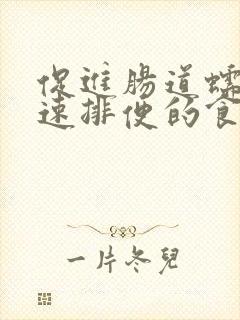 促進腸道蠕
速排便的食
一片冬兒